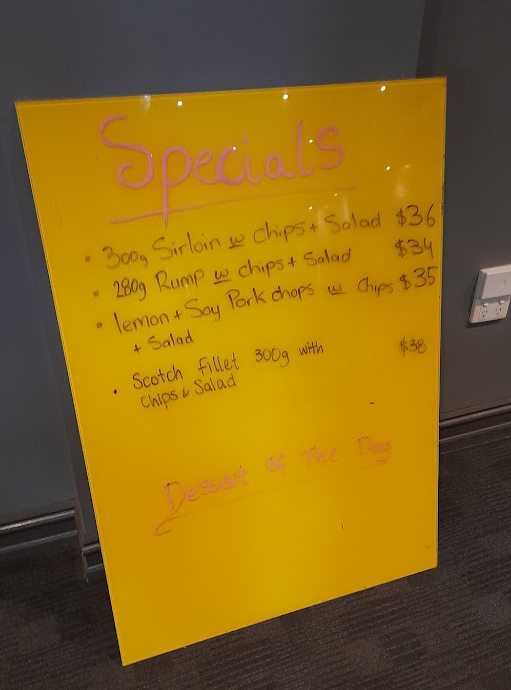 Specials
• 300g Sirloin w chips + Salad $36
• 280g Rump w chips + Salad $34
• lemon + Soy Pork chops w Chips $35
+ Salad
• Scotch Fillet 300g with $38
Chips & Salad
Dessert of The Day